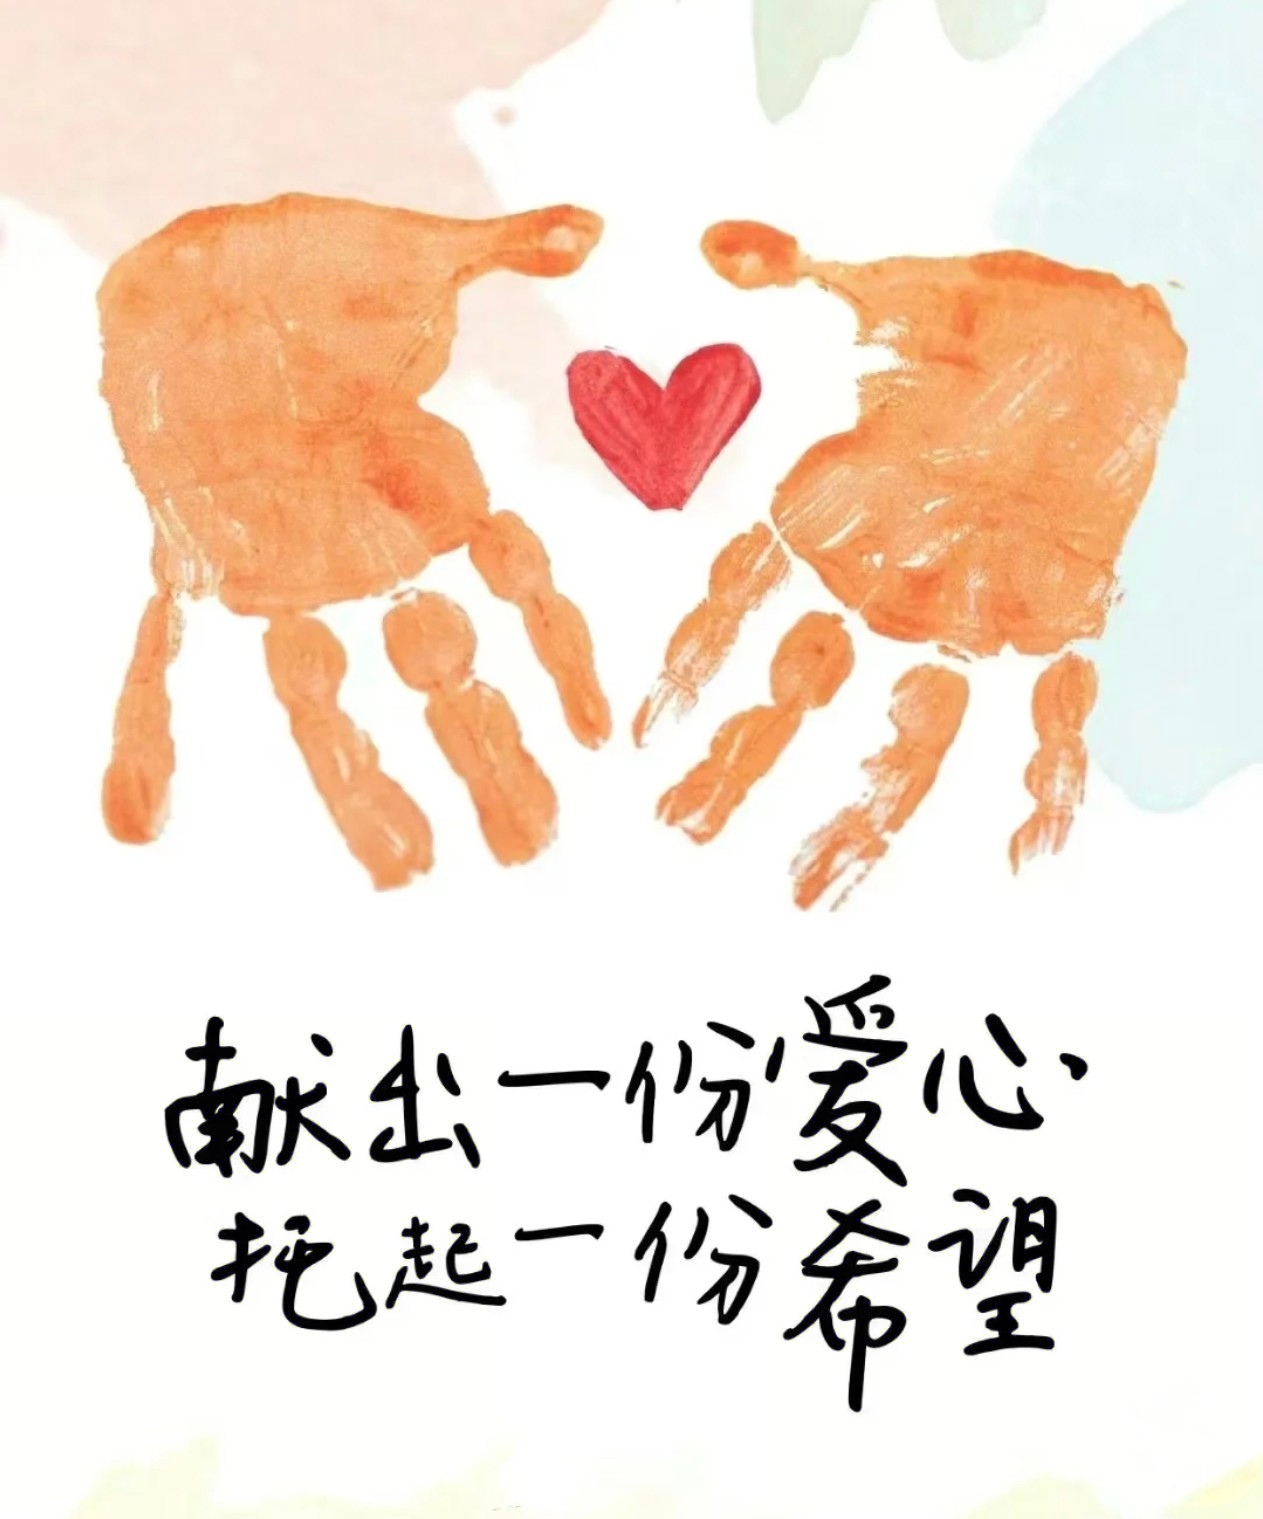 献出一份爱心
托起一份希望